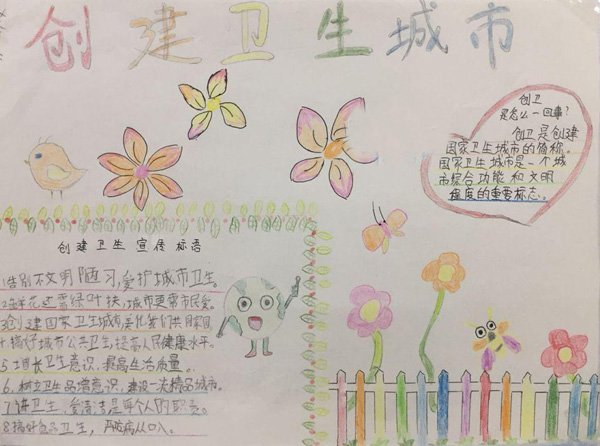 创建卫生城市
创卫
是怎么一回事?
创卫是创建
国家卫生城市的简称。
国家卫生城市是一个城
市综合功能和文明
程度的重要标志。
创建卫生宣传标语
1告别不文明陋习,爱护城市卫生。
2鲜花还需绿叶扶,城市更需市民爱。
3创建国家卫生城市是我们共同
4搞好城市公共卫生,提高人民健康水平。
5增长卫生意识,提高生活质量。
6.树立卫生品牌意识,建设一流精品城市。
7讲卫生,爱清洁是每个人的职责。
8搞好食品卫生,严防病从口入。